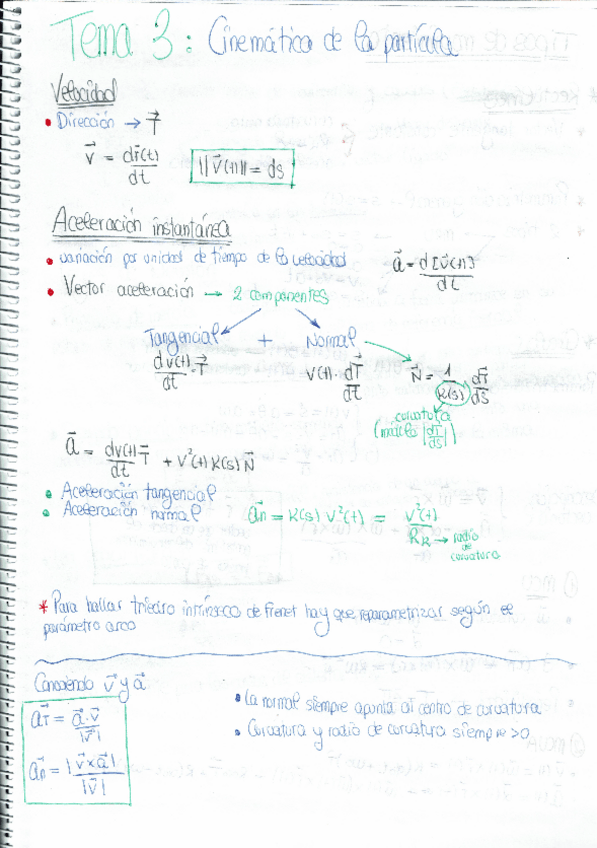 Tema 3: Cinemática de la partícula
Velocidad
• Dirección → T⃗
v⃗ = dr⃗(t)/dt
||v⃗(t)|| = ds
Aceleración instantánea
• variación por unidad de tiempo de la velocidad
a⃗ = d[v⃗(t)]/dt
• Vector aceleración → 2 componentes
Tangencial + Normal
dv(t)/dt T⃗
v(t) · dT⃗/dt
N⃗ = 1/K(s) dT⃗/ds
curvatura
|dT⃗/ds|
a⃗ = dv(t)/dt T⃗ + v²(t) K(s) N⃗
• Aceleración tangencial
• Aceleración normal
a⃗n = K(s) v²(t) = v²(t)/Rk → radio de curvatura
* Para hallar triedro intrínseco de Frenet hay que reparametrizar según el
parámetro arco
Conociendo v⃗ y a⃗
a⃗T = a⃗ · v⃗/|v⃗|
a⃗n = |v⃗ × a⃗|/|v⃗|
• La normal siempre apunta al centro de curvatura
• Curvatura y radio de curvatura siempre >0